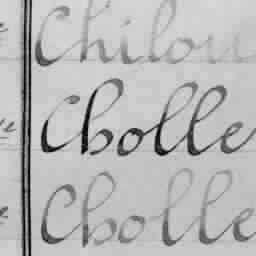 Chilou
Cholle
Cholle